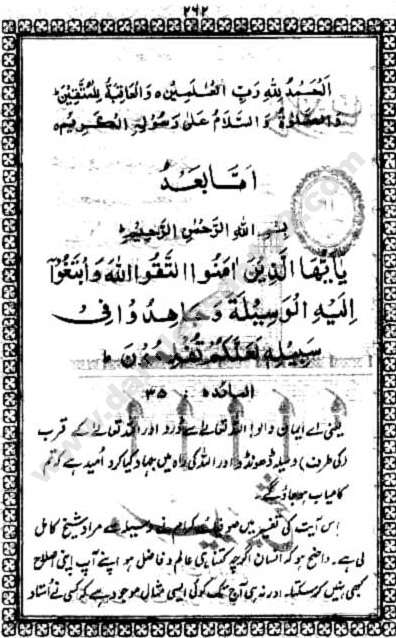 ۲۶۲
اَلْحَمْدُ لِلّٰهِ رَبِّ الْعٰلَمِيْنَ ه وَالْعَاقِبَةُ لِلْمُتَّقِيْنَ ط
وَالصَّلٰوةُ وَالسَّلَامُ عَلٰى رَسُوْلِهِ الْكَرِيْمِ ه
اَمَّا بَعْدُ
بِسْمِ اللهِ الرَّحْمٰنِ الرَّحِيْمِ ط
يٰاَيُّهَا الَّذِيْنَ اٰمَنُوا اتَّقُوا اللهَ وَابْتَغُوْٓا
اِلَيْهِ الْوَسِيْلَةَ وَجَاهِدُوْا فِيْ
سَبِيْلِهٖ لَعَلَّكُمْ تُفْلِحُوْنَ ط
المائدہ : ۳۵
یعنی اے ایمان والو! اللہ تعالےٰ سے ڈرو اور اللہ تعالےٰ کے قرب
(کی طرف) وسیلہ ڈھونڈو اور اللہ کی راہ میں جہاد کیا کرو اُمید ہے کہ تم
کامیاب ہو جاؤ گے۔
اِس آیت کی تفسیر میں صوفیائے کرام نے وسیلہ سے مراد شیخ کامل
لی ہے۔ واضح ہو کہ انسان اگرچہ کتنا ہی عالم و فاضل ہو اپنے آپ اپنی اصلاح
کبھی نہیں کر سکتا۔ اور نہ ہی آج تک کوئی ایسی مثال موجود ہے کہ کسی نے اُستاد